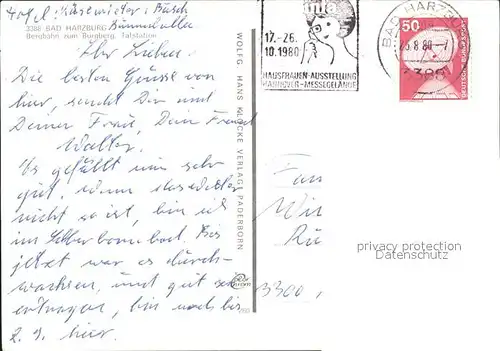 3388 BAD HARZBURG
Bergbahn zum Burgberg, Talstation
Ihr Lieben.
Die besten Grüsse von
hier, sendet Dir und
Deiner Frau, Dein Freund
Walter.
Es gefällt mir sehr
gut, wenn das Wetter
nicht so ist, bin ich
im Silberbornbad. Bis
jetzt war es durch-
wachsen, und gut zu
ertragen, bin noch bis
2. 9. hier.
WOLFG. HANS KLOCKE VERLAG PADERBORN
17.-26.
10.1980
HAUSFRAUEN-AUSSTELLUNG
HANNOVER-MESSEGELÄNDE
BAD HARZBU
25.8.80-7
50
DEUTSCHE BUNDESPOST
Fam
3300
privacy protection
Datenschutz